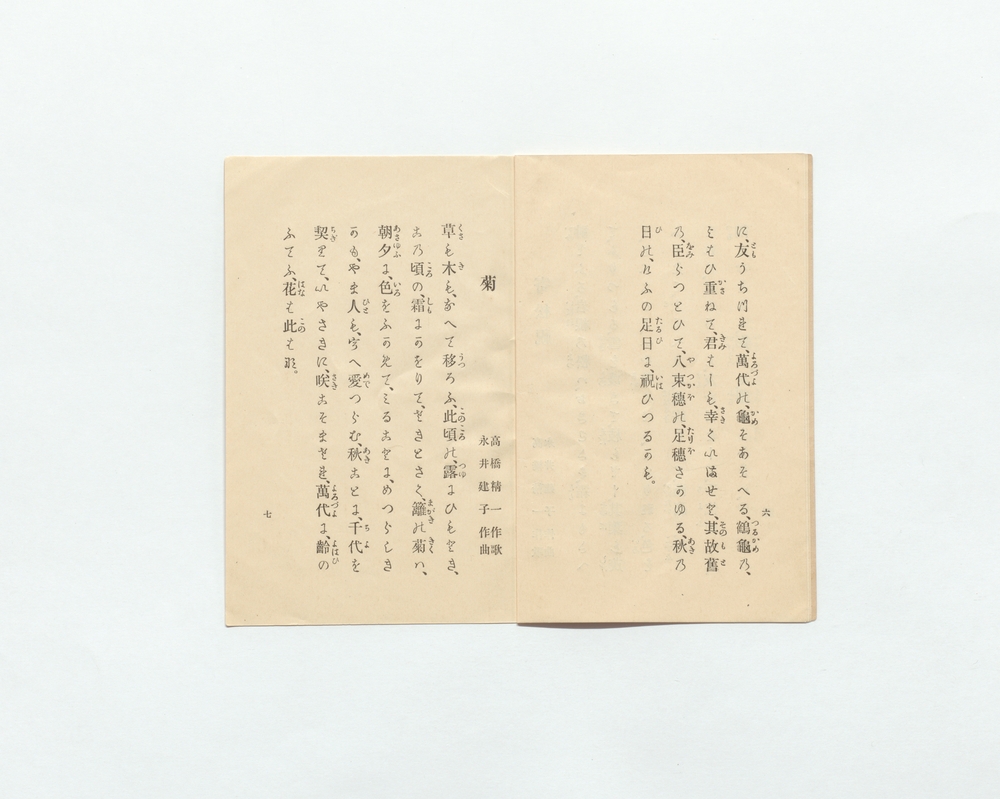 に、友うち川まて、萬代の、龜そあそへる、鶴龜乃、
とむひ重ねて、君もしも、幸くいませと、其故舊
乃、臣らつとひて、八束穗の、足穗さかゆる、秋乃
日の、けふの足日に、祝ひつるかも。
六
菊
高橋精一作歌
永井建子作曲
草も木も、なへて移ろふ、此頃の、露にひもとき、
この頃の、霜にかをりて、さきとさく、籬の菊ハ、
朝夕に、色をふかめて、みることに、めつらしき
かも、やま人も、うへ愛つらむ、秋ことに、千代を
契りて、いやさきに、咲こそまされ、萬代に、齡の
ふてふ、花も此も那。
七